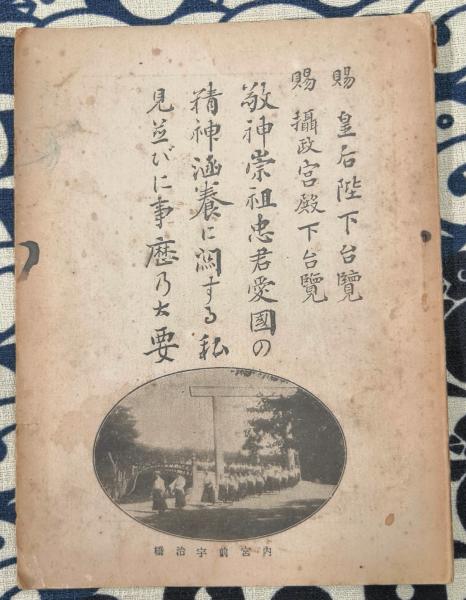 賜 皇后陛下台覽
賜 攝政宮殿下台覽
敬神崇祖忠君愛國の
精神涵養に關する私
見並びに事歴乃大要
内宮前宇治橋